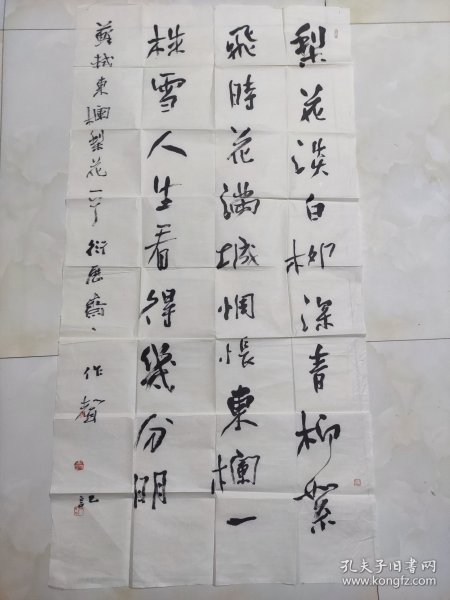 梨花淡白柳深青柳絮
飛時花滿城惆悵東欄一
株雪人生看得幾分明
蘇軾東欄梨花一首
孔夫子旧书网
www.kongfz.com